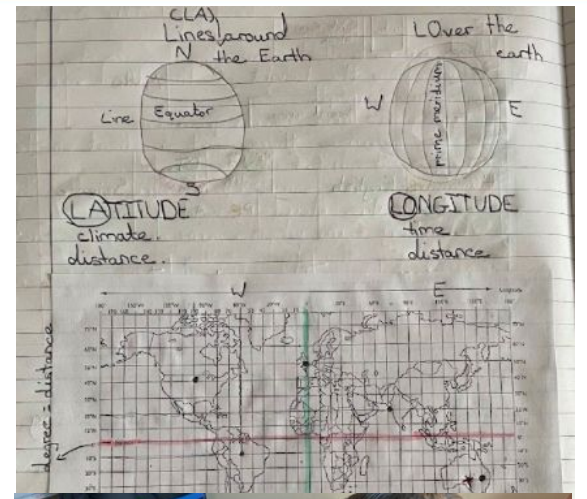 (LA)
Lines around
the Earth
N
Line
Equator
S
LATITUDE
climate.
distance.
LOver the
earth
W
prime meridium
E
LONGITUDE
time
distance
W
E
degree = distance